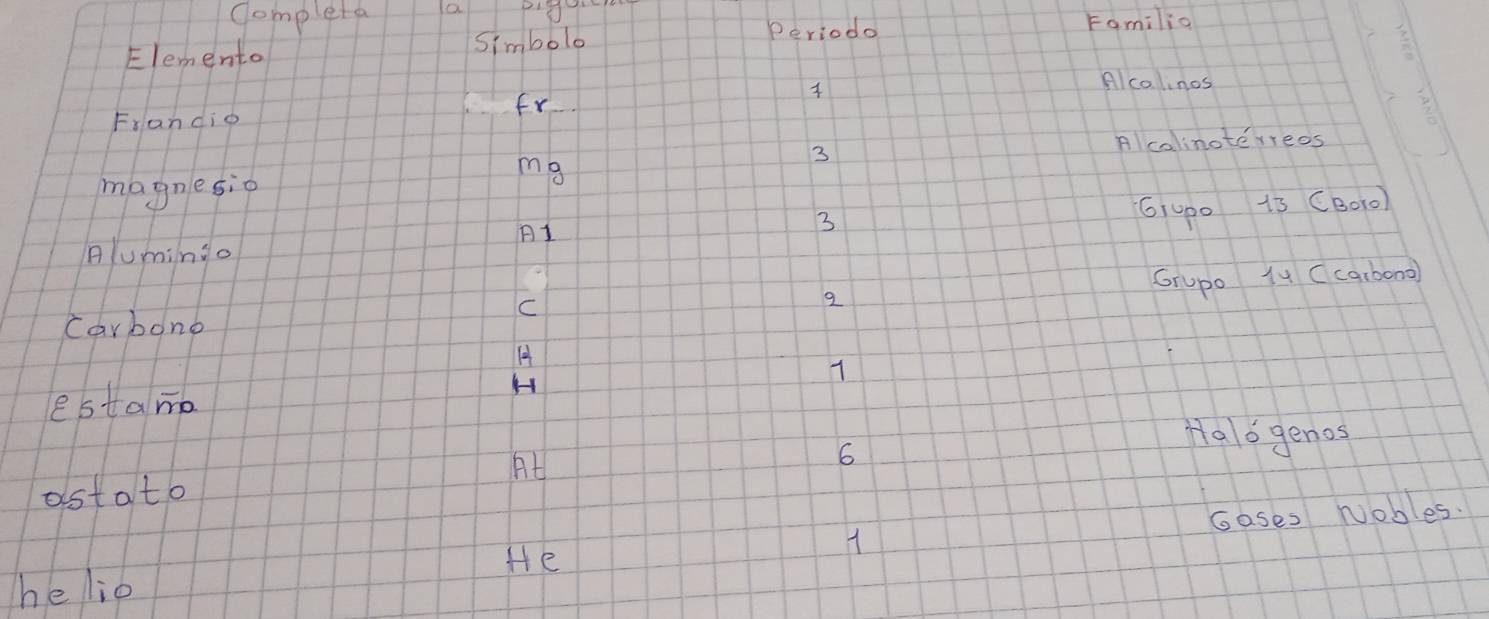 Completa la
Elemento Simbolo Periodo Familia
Francio Fr 7 Alcalinos
magnesio mg 3 Alcalinotérreos
Aluminio Al 3 Grupo 13 (Boro)
Carbono C 2 Grupo 14 (carbono)
H
estaño H 1
astato At 6 Halógenos
helio He 1 Gases Nobles.